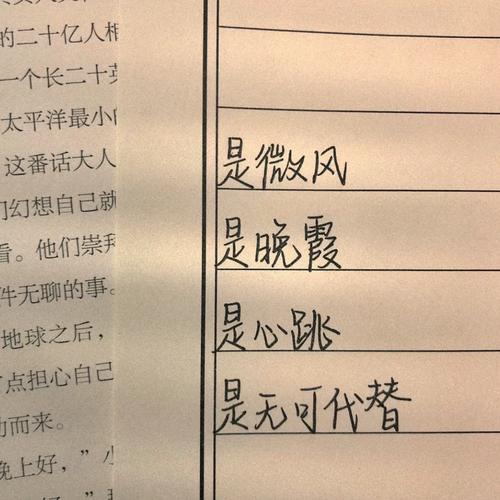 的二十亿人相
一个长二十英
太平洋最小的
这番话大人
们幻想自己就
看。他们崇拜
件无聊的事。
地球之后，
点担心自己
而来。
晚上好，”小
是微风
是晚霞
是心跳
是无可代替